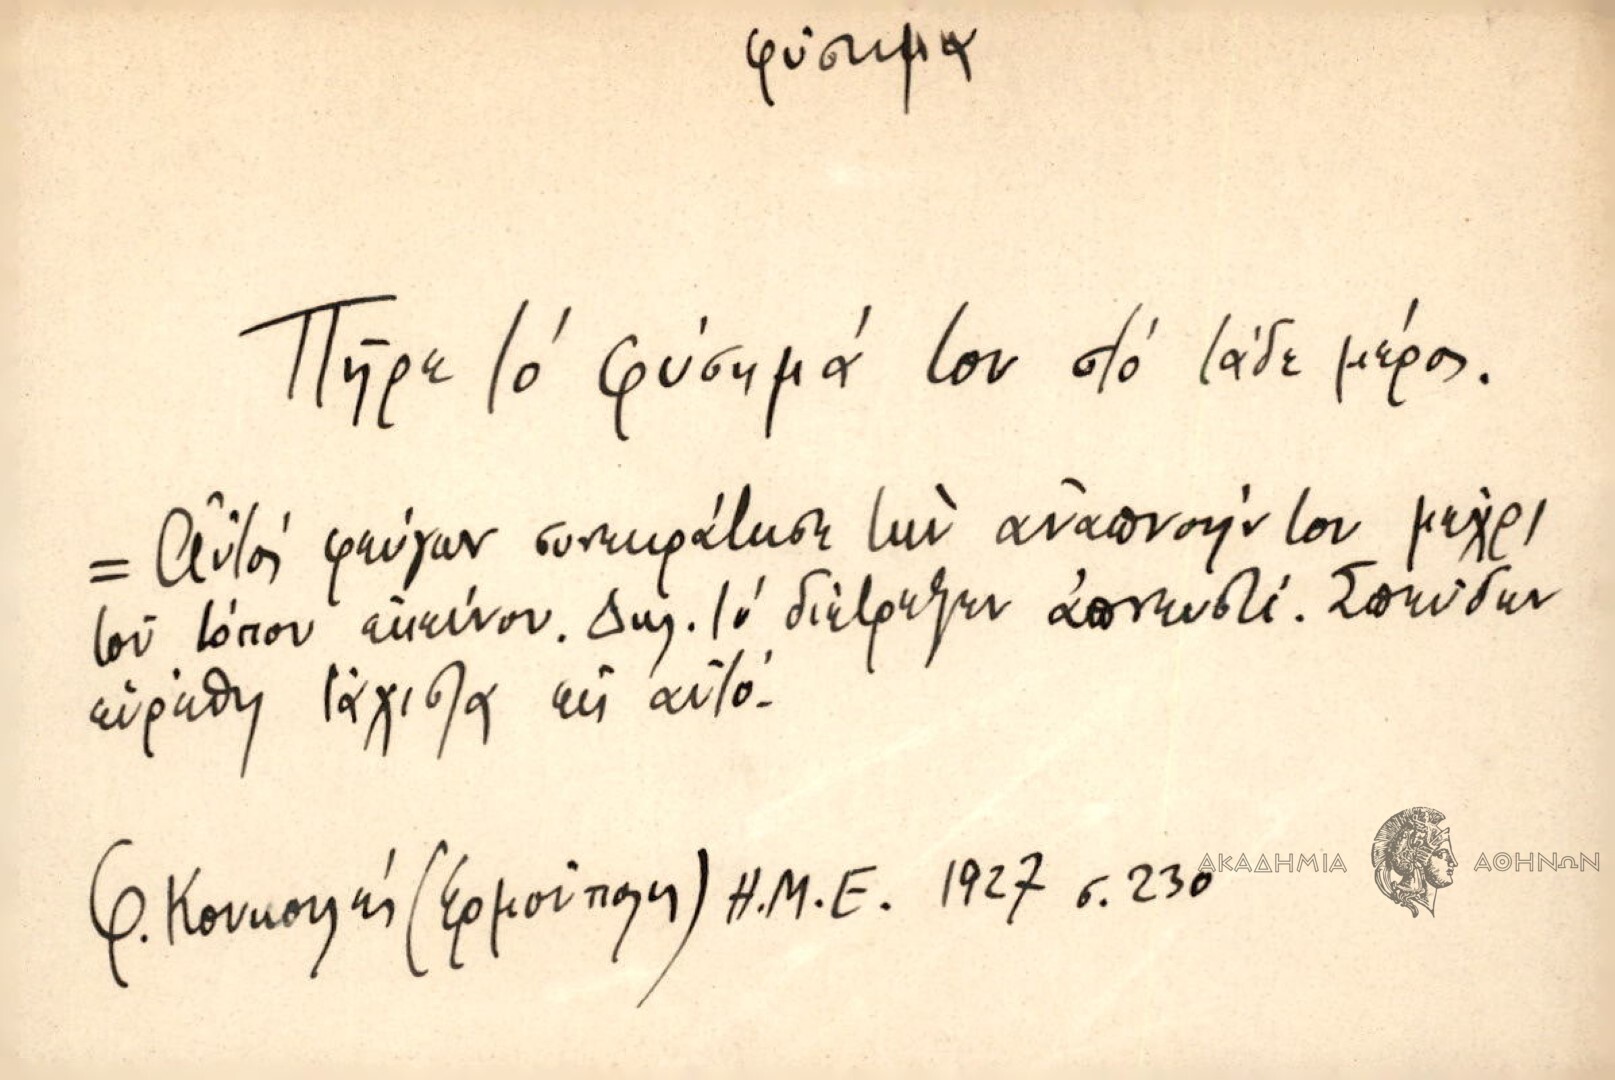 φύσημα
Πῆρε τό φύσημά του στό τάδε μέρος.
= Αὐτός φεύγων συνεκράτησε τήν ἀναπνοήν του μεχρι
τοῦ τόπου ἐκείνου. Δηλ. τό διέτρεξεν ἀπνευστί. Σπεύδων
εὑρέθη τάχιστα εἰς αὐτό.
Φ. Κουκουλές (Ἑρμούπολη) Η.Μ.Ε. 1927 σ. 230
ΑΚΑΔΗΜΙΑ ΑΘΗΝΩΝ